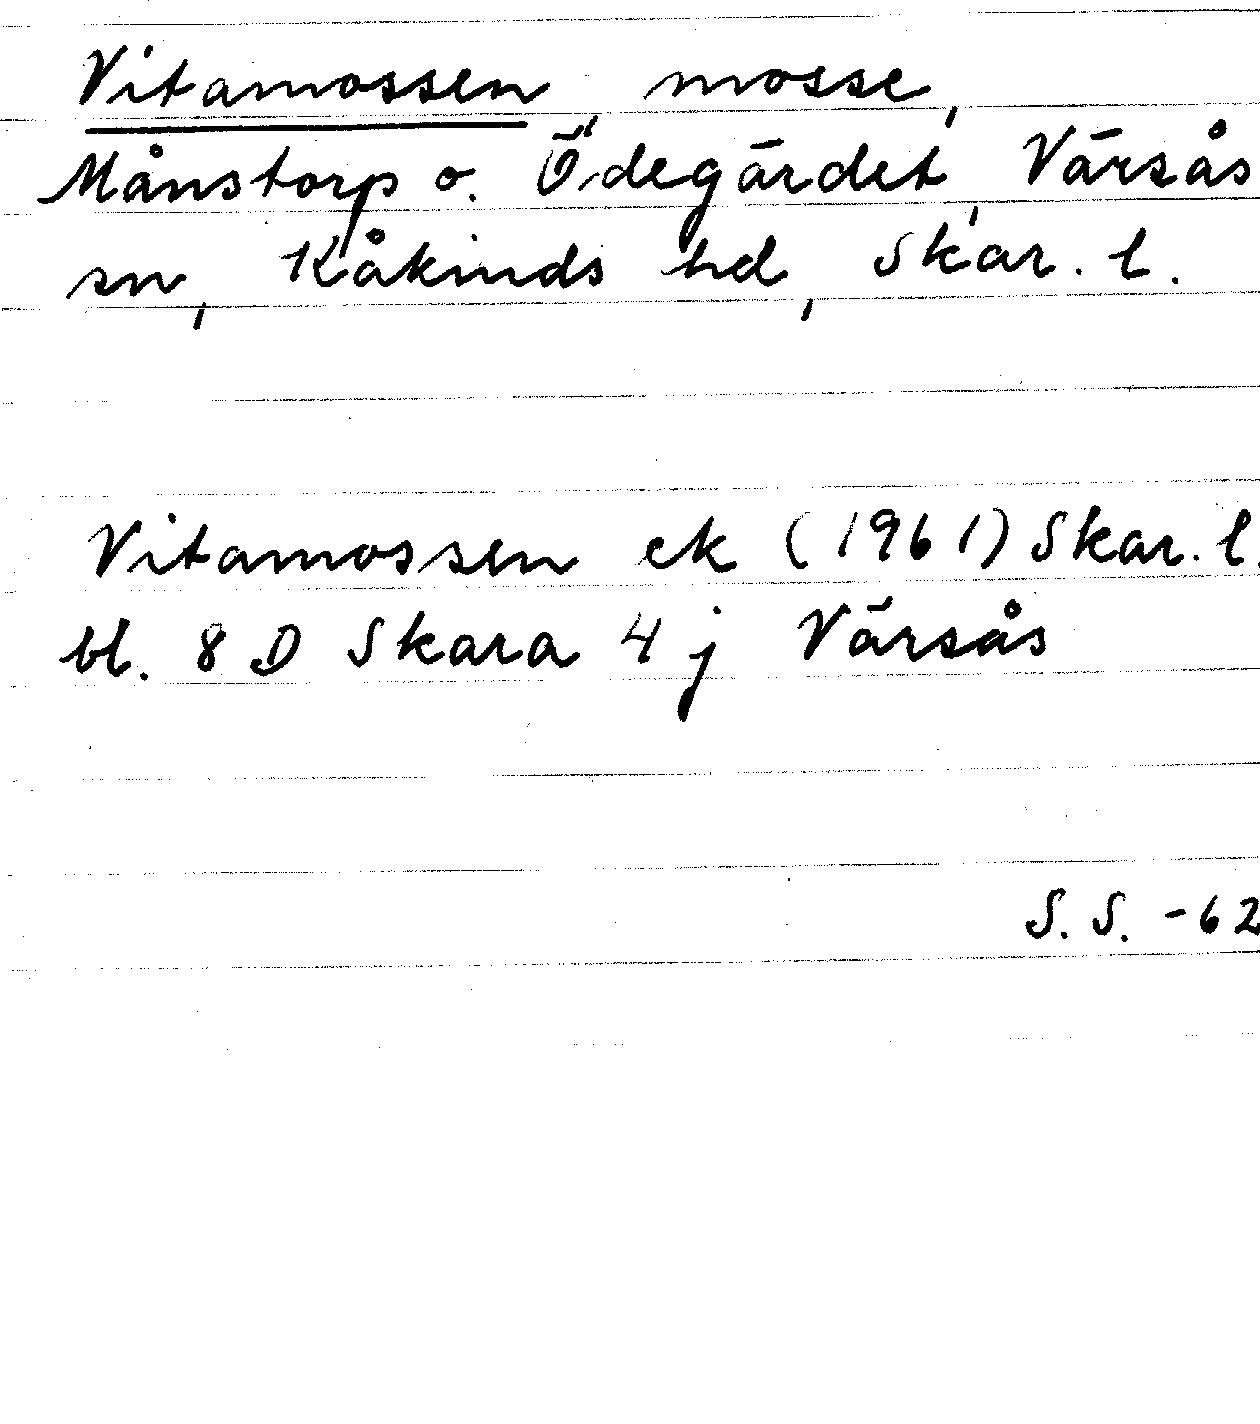 Vitamossen, mosse,
Månstorp o. Ödegärdet, Värsås
sn, Kåkinds hd, Skar. l.
Vitamossen ek (1961) Skar. l.
bl. 8 D Skara 4 j Värsås
S. S. -62